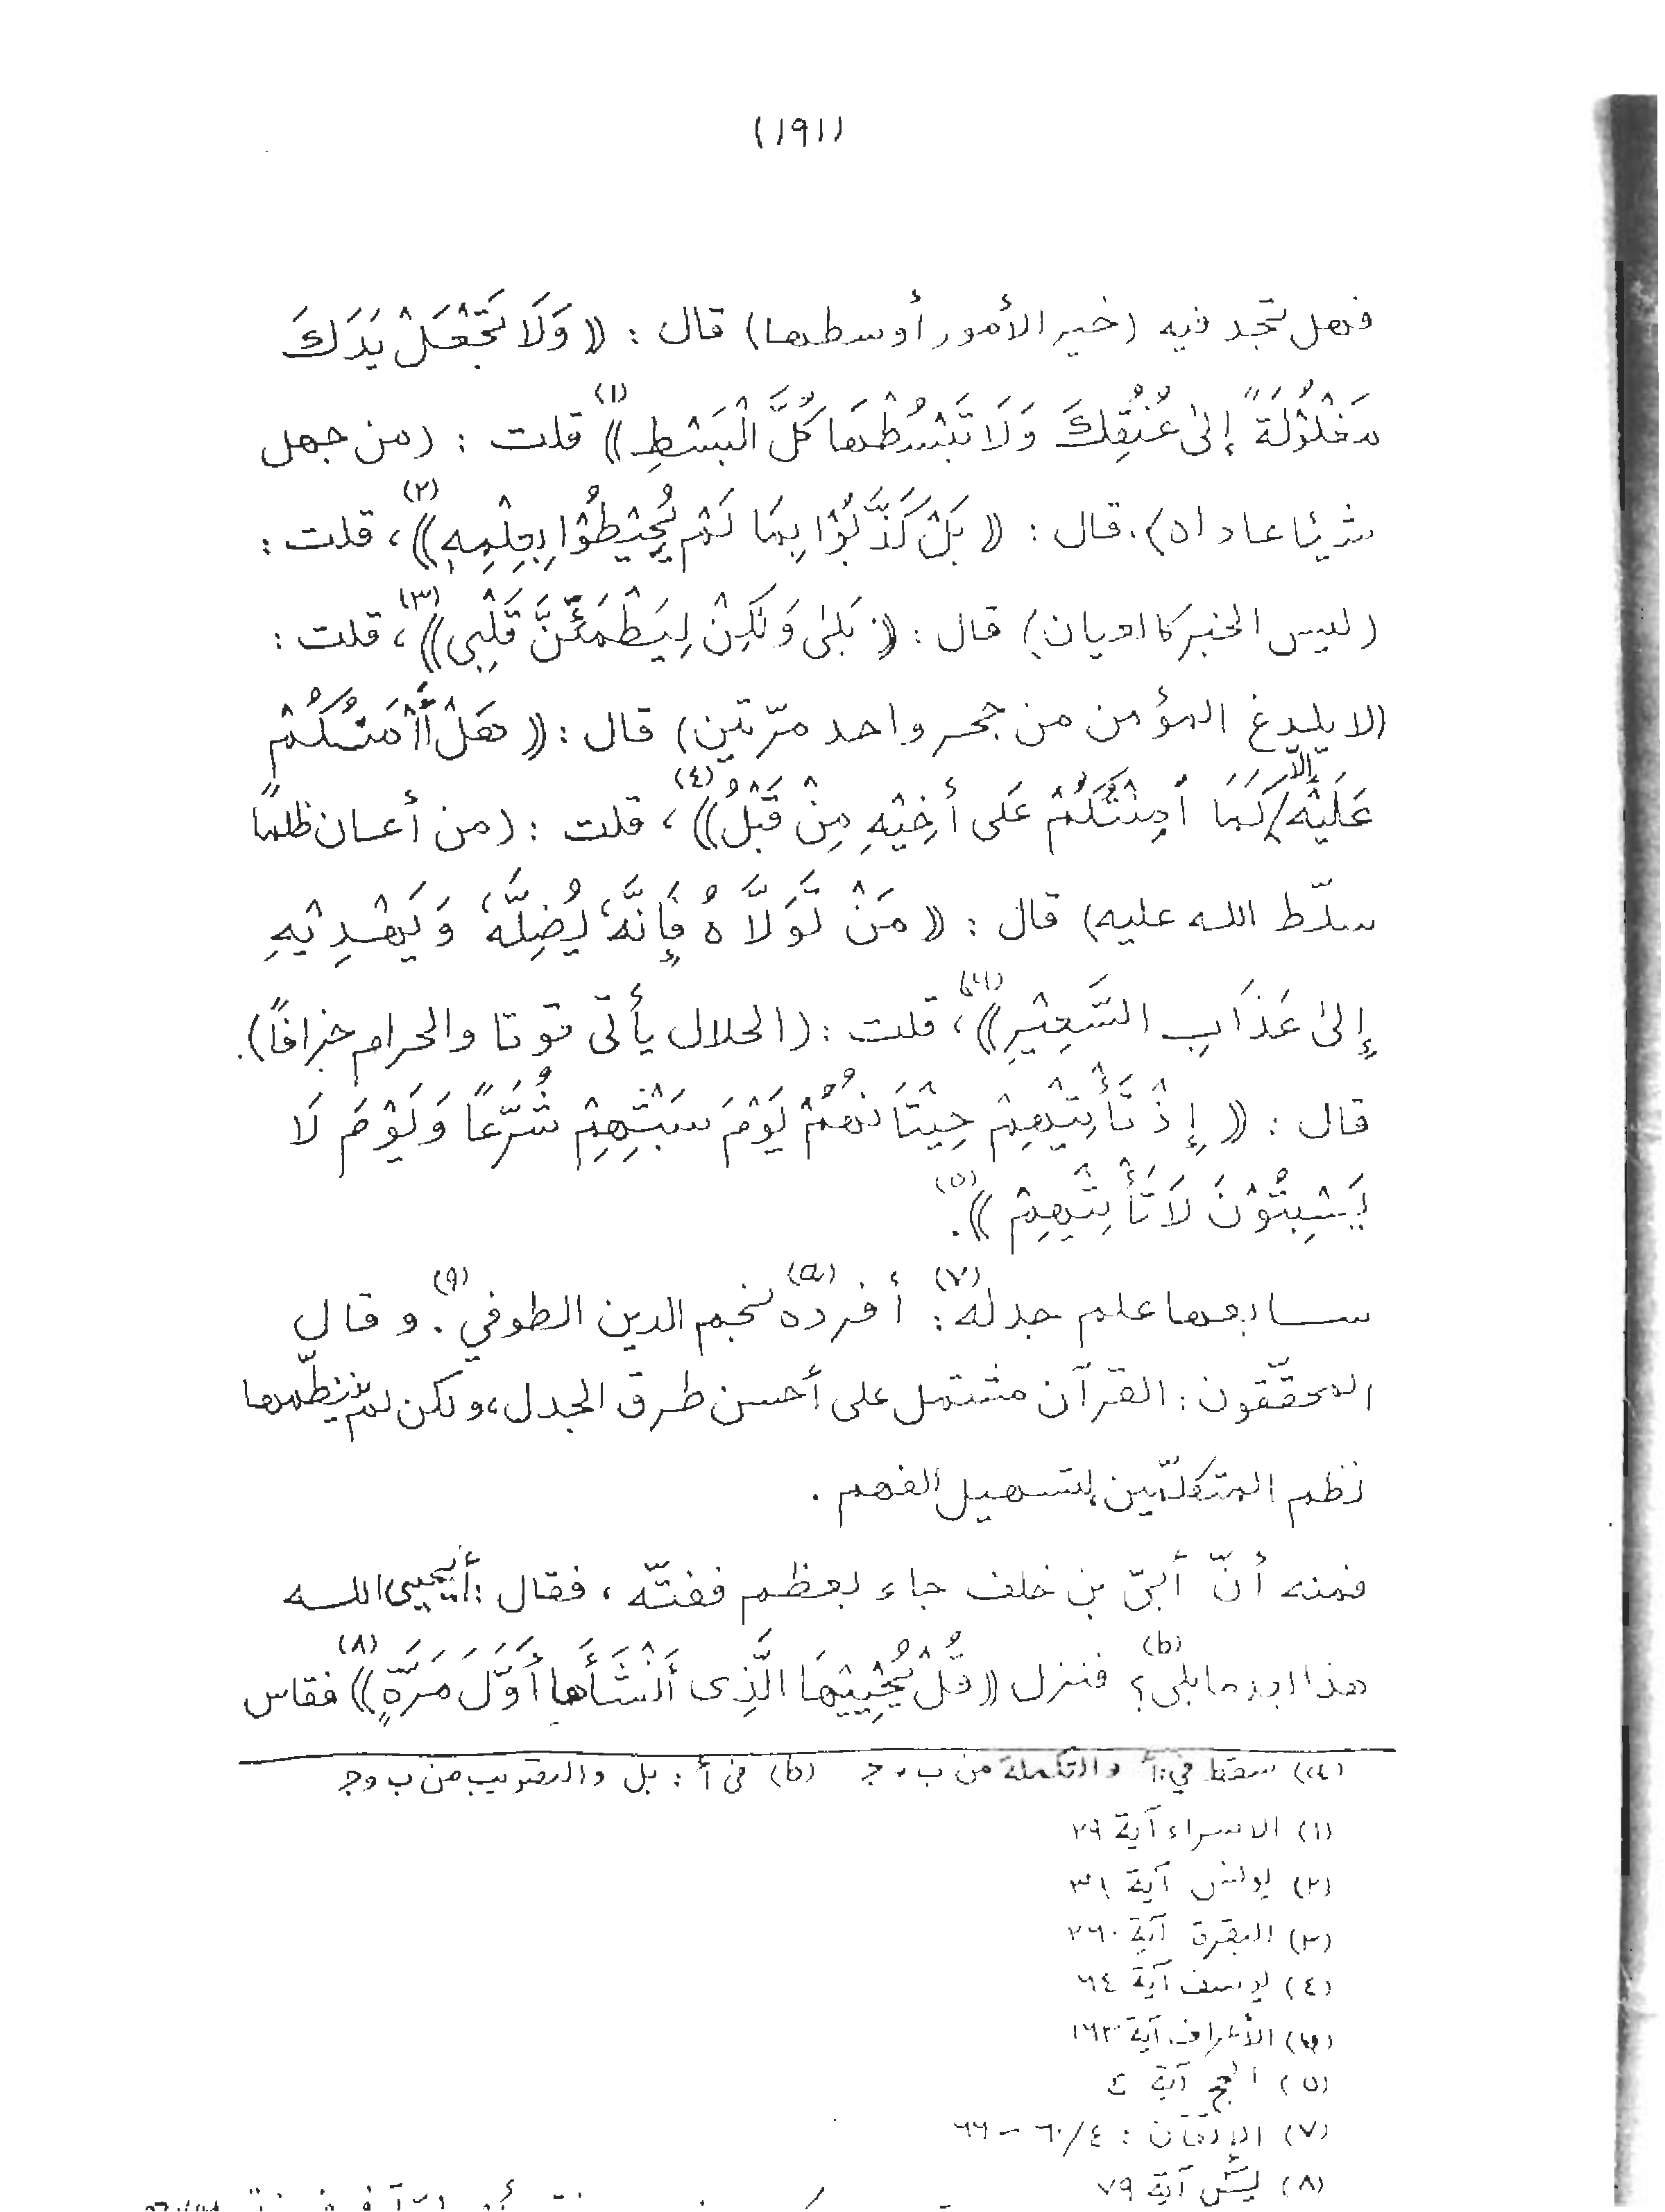 (١٩١)
فهل تجد فيه (خير الأمور أوسطها) قال : ((وَلَا تَجْعَلْ يَدَكَ
مَغْلُوْلَةً إِلىٰ عُنُقِكَ وَلَا تَبْسُطْهَا كُلَّ الْبَسْطِ))(١) قلت : (من جهل
شيئا عاداه). قال : ((بَلْ كَذَّبُوْا بِمَا لَمْ يُحِيْطُوْا بِعِلْمِهِ))(٢)، قلت :
(ليس الخبر كالعيان) قال : ((بَلىٰ وَلٰكِنْ لِيَطْمَئِنَّ قَلْبِى))(٣)، قلت :
(لا يلدغ المؤمن من جحر واحد مرّتين) قال : ((هَلْ أٰمَنُكُمْ
عَلَيْهِ إلاّ كَمَا أَمِنْتُكُمْ عَلى أَخِيْهِ مِنْ قَبْلُ))(٤)، قلت : (من أعان ظلما
سلّط الله عليه) قال : ((مَنْ تَوَلَّاهُ فَإِنَّهُ يُضِلُّهُ وَيَهْدِيْهِ
إِلىٰ عَذَابِ السَّعِيْرِ))، قلت : (الحلال يأتى قوتا والحرام جزافاً).
قال : ((إِذْ تَأْتِيْهِمْ حِيْتَانُهُمْ يَوْمَ سَبْتِهِمْ شُرَّعًا وَيَوْمَ لَا
يَسْبِتُوْنَ لَا تَأْتِيْهِمْ))(٥).
سابعها علم جدله(٧) : أفرده(a) نجم الدين الطوفي(٩). وقال
المحقّقون : القرآن مشتمل على أحسن طرق الجدل، ولكن لم ينظّمها
نظم المتكلّمين لتسهيل الفهم .
فمنه أنّ أبىّ بن خلف جاء بعظم ففتّه ، فقال : أيحيى الله
هذا بعد ما بلى(b)؟ فنزل ((قُلْ يُحْيِيْهَا الَّذِى أَنْشَأَها أَوَّلَ مَرَّةٍ))(٨) فقاس
(a) سقط في : أ والتكملة من ب ، ج (b) فى أ : بل والتصويب من ب وج
(١) الاسراء آية ٢٩
(٢) يونس آية ٣٩
(٣) البقرة آية ٢٦٠
(٤) يوسف آية ٦٤
الأعراف آية ١٦٣
(٥) الحج آية ٤
(٧) الإتقان : ٤/٦٠ - ٦٦
(٨) يسۤ آية ٧٩